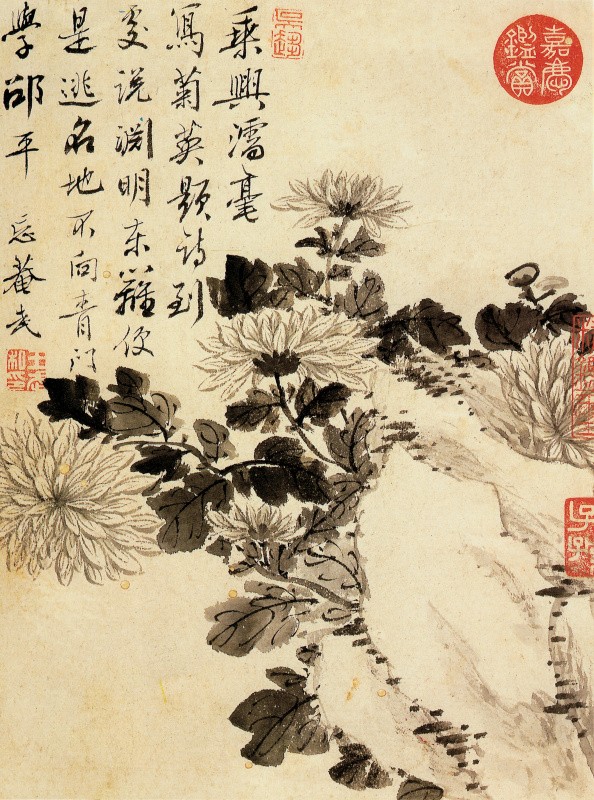 嘉慶
鑑賞
乘興濡毫
寫菊英題詩到
處説淵明東籬便
是逃名地不向青門
學邵平 忘菴武